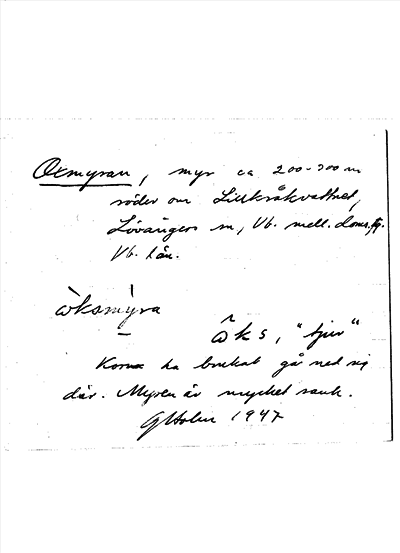 Oxmyran, myr ca 200-300 m
söder om Lillkråkvattnet,
Lövångers sn, Vb. mell. doms.
Vb. län.
òksmỳra
õks, "tjur"
Korna ha brukat gå ned sig
där. Myren är mycket sank.
G Holm 1947